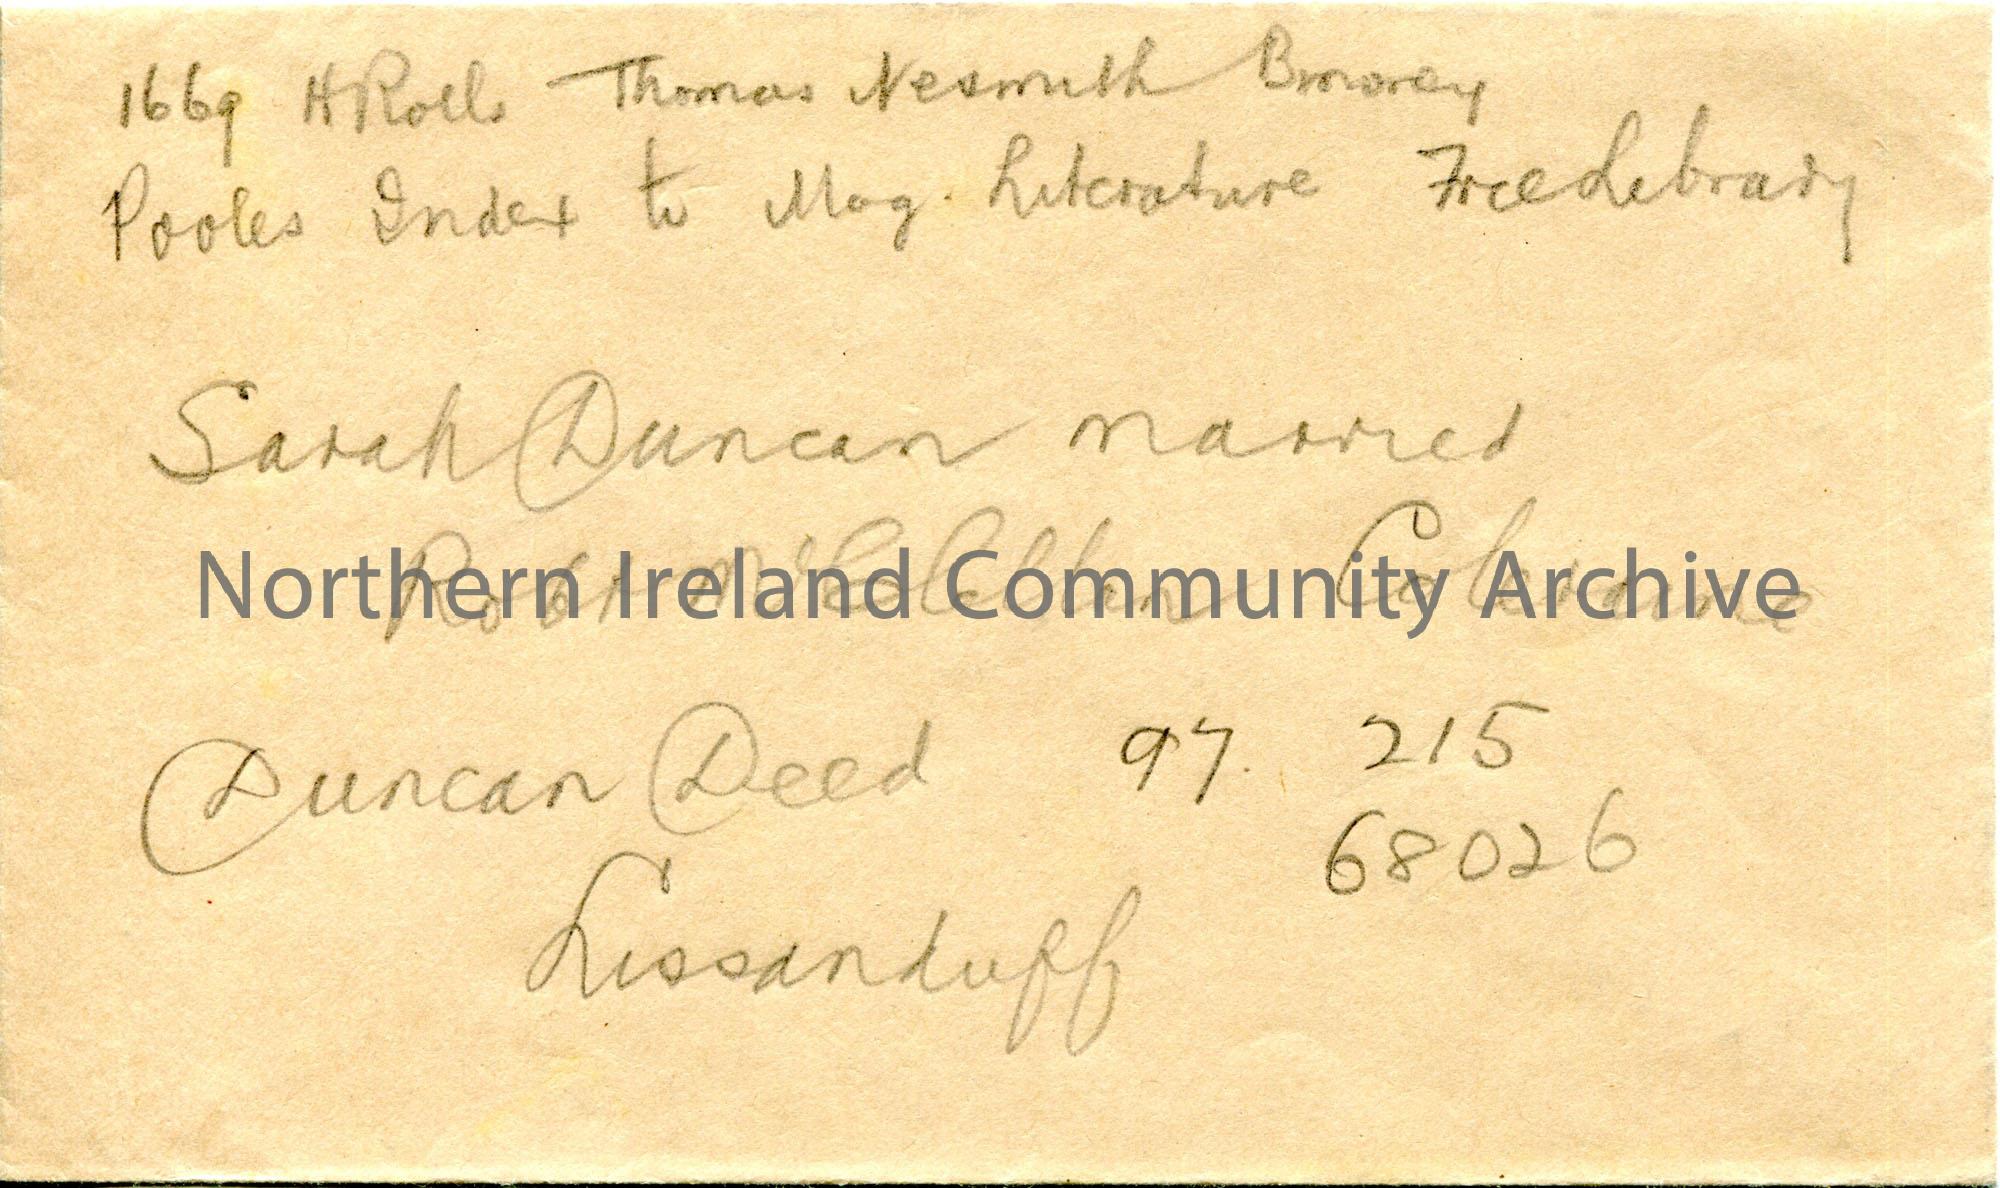 1669 H Rolls Thomas Nesmith
Pooles Index to Mag. Literature Free Library
Sarah Duncan married
Robt Coleraine
Northern Ireland Community Archive
Duncan Deed 97. 215
68026
Lissanduff